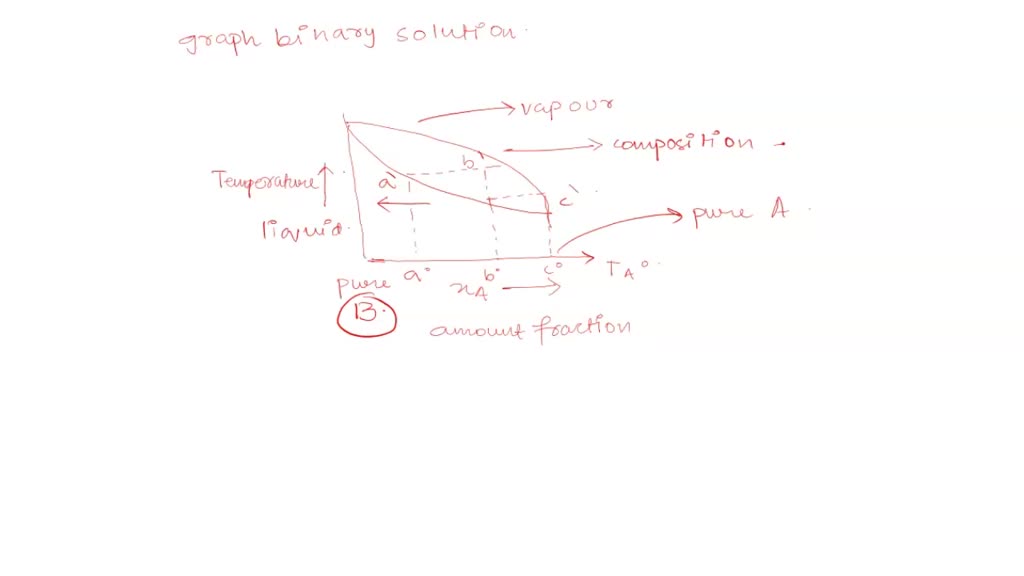 graph binary solution.
vapour
composition
b'
Temperature
a'
c'
pure A
liquid.
a°
b°
c°
TA°
pure
xA
B.
amount fraction